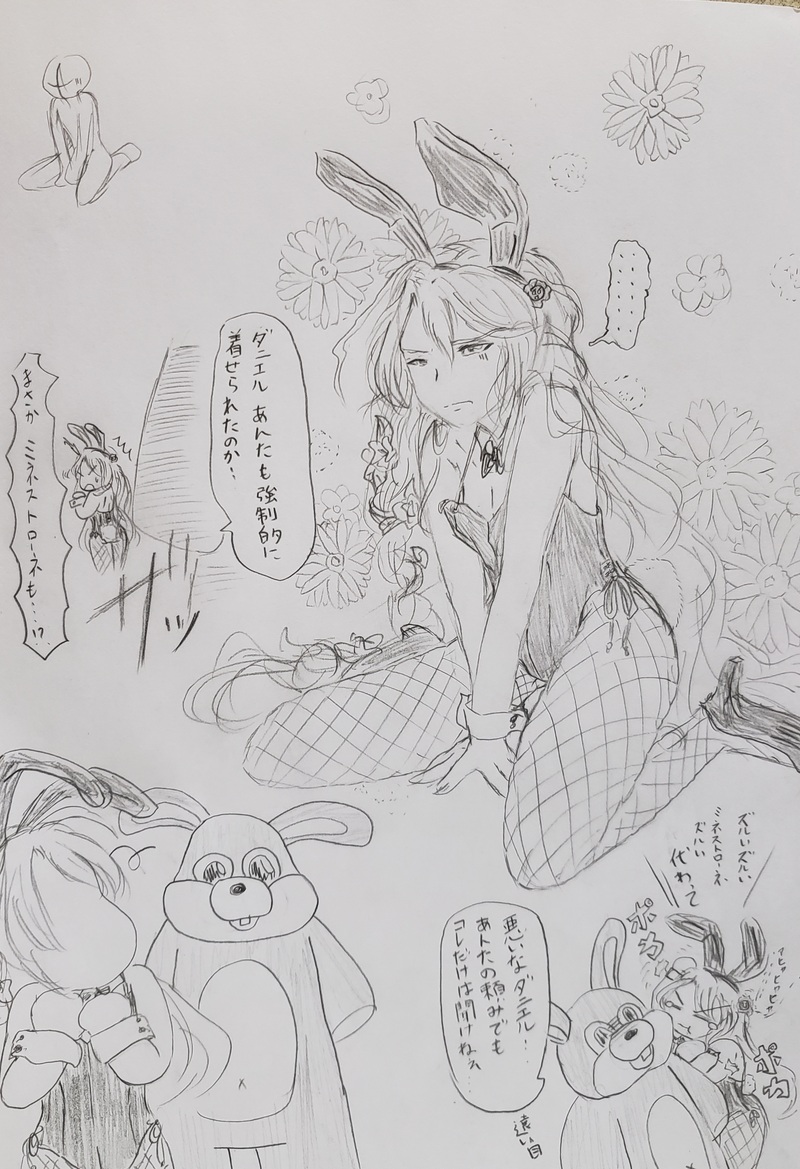 ダニエル あんたも強制的に
着せられたのか‥
まさか ミネストローネも‥‥!?
ガッ
ズルいズルい
ミネストローネ
ズルい
代わって
ポカ
ポカ
悪いなダニエル‥
あんたの頼みでも
コレだけは聞けねぇ‥‥
遠い目